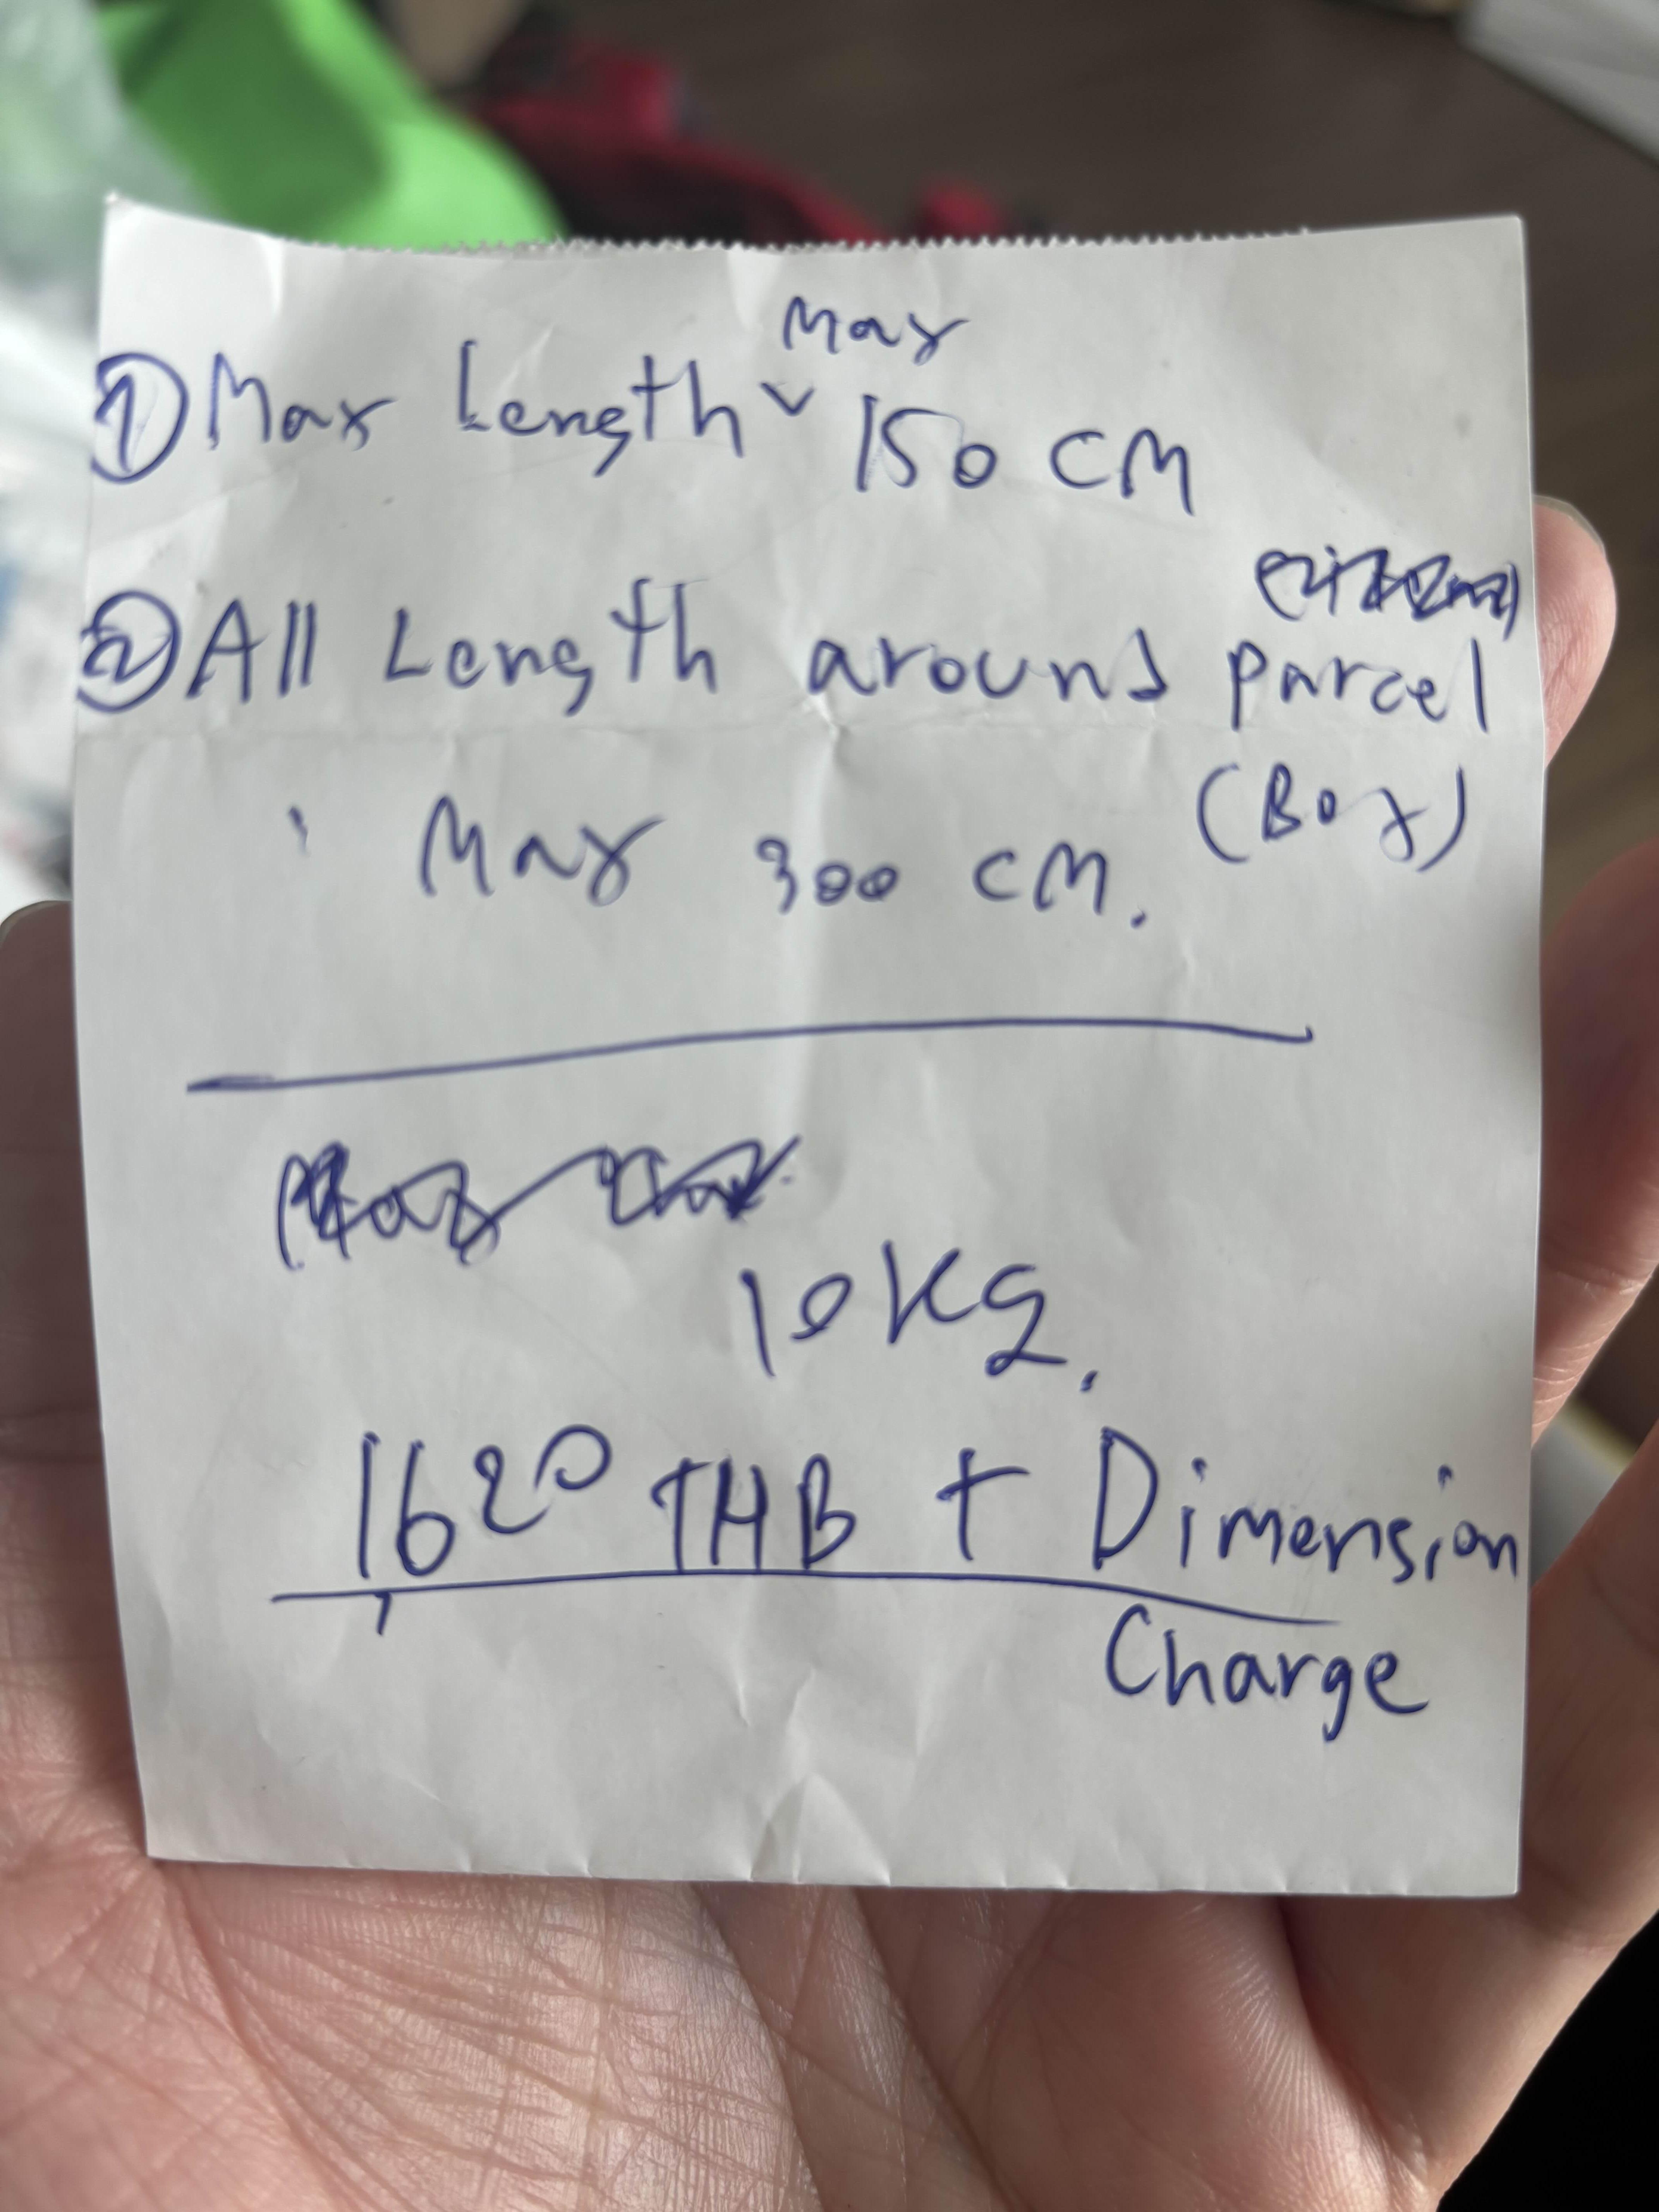 Max
① Max Length ˅ 150 CM
② All Length around parcel
(Box)
Max 300 CM.
10 KG.
1620 THB + Dimension
Charge